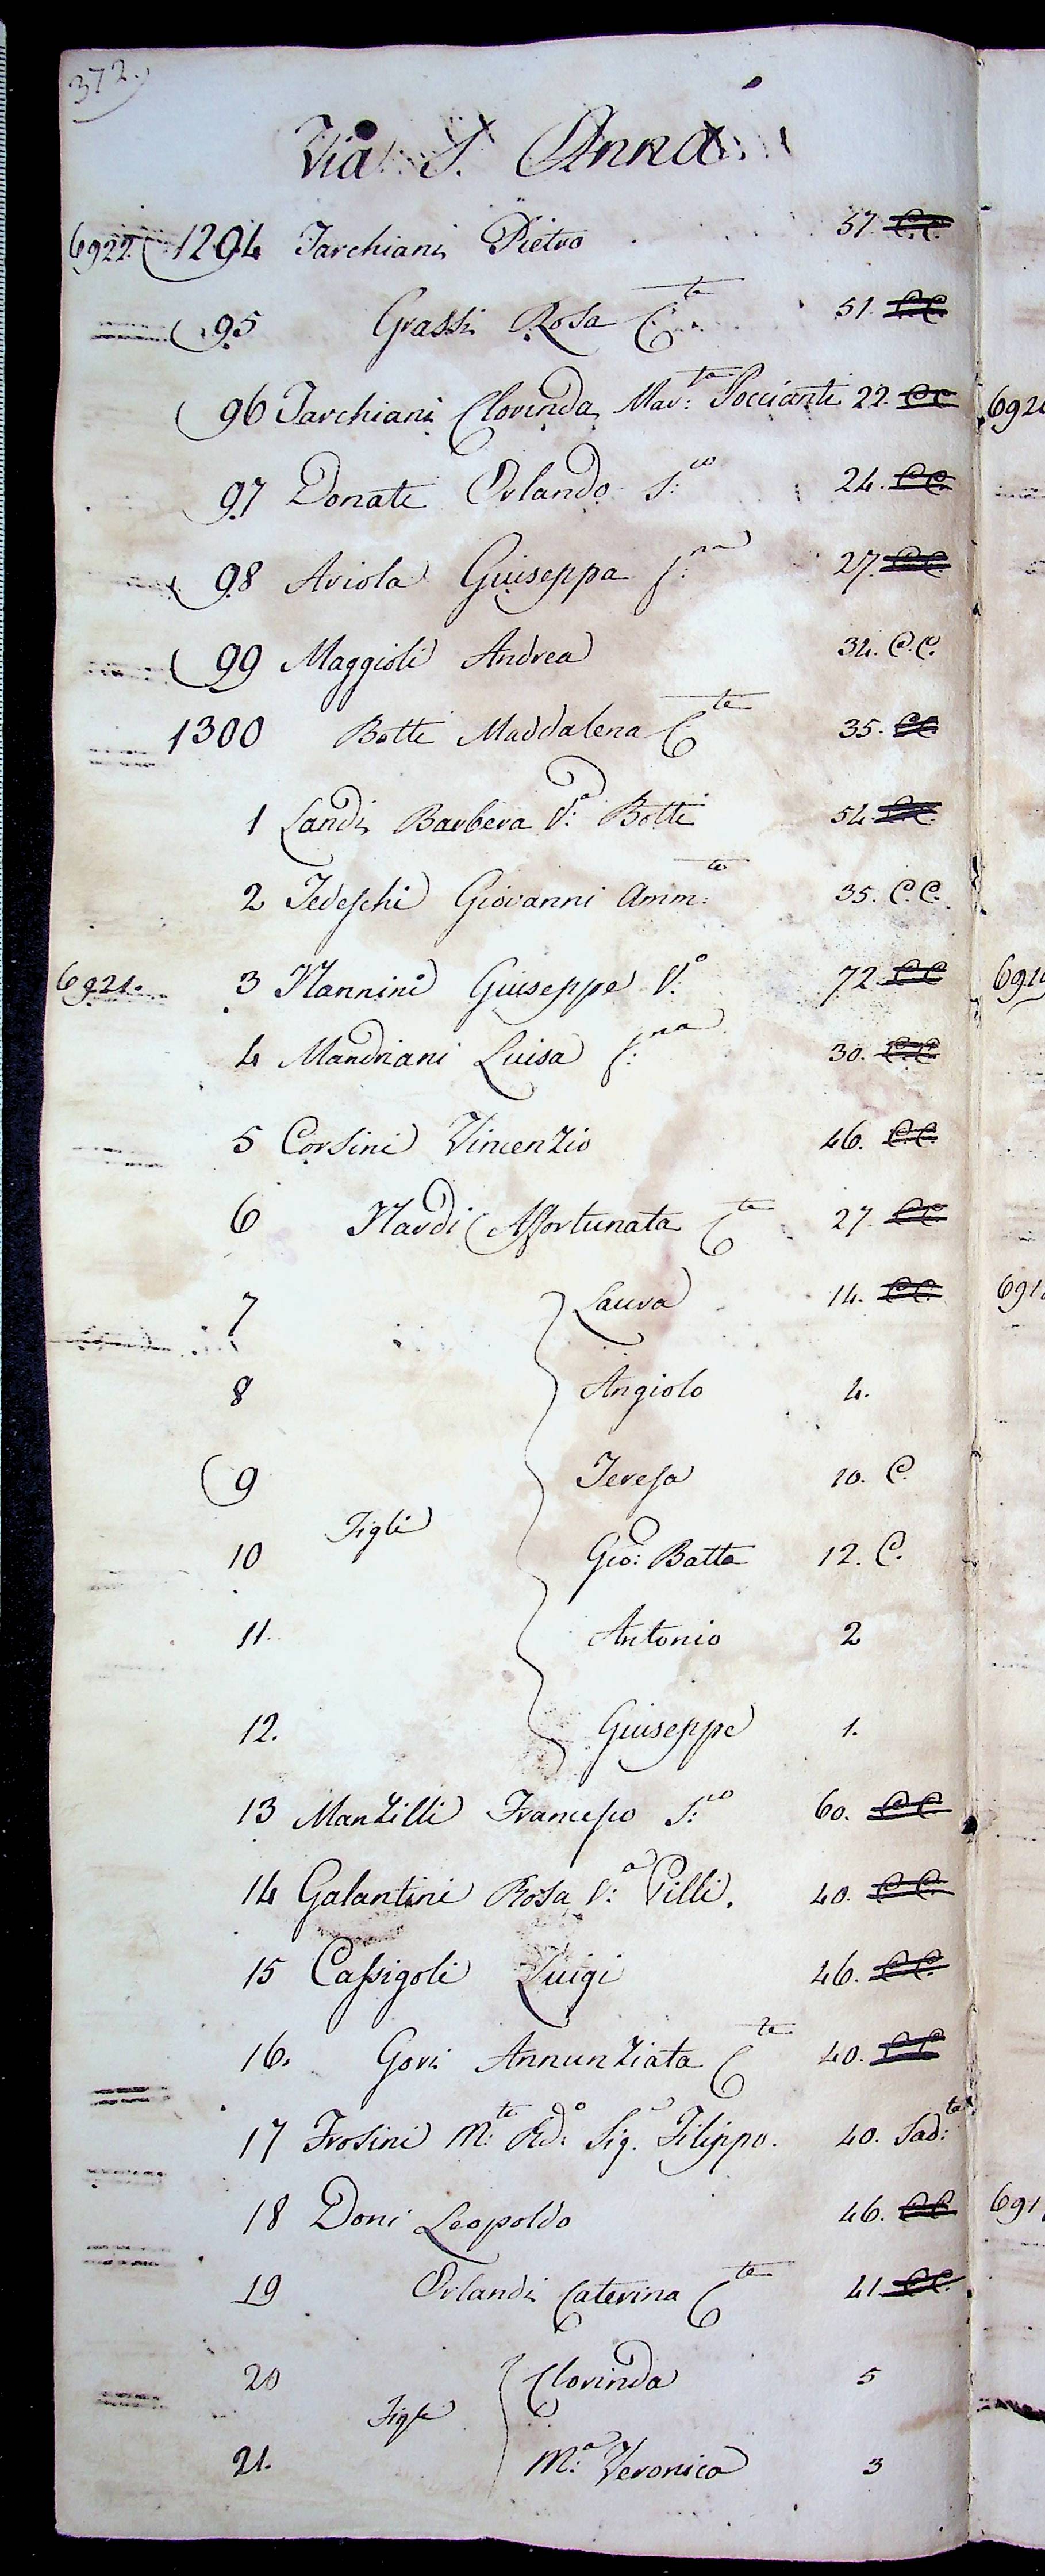 372.
Via S. Anna
6922. 1294 Tarchiani Pietro 57. C.C.
95 Grassi Rosa C.te 51. C.C.
96 Tarchiani Clorinda Mar:ta Poccianti 22. C.C.
97 Donati Orlando S:co 24. C.C.
98 Ariola Giuseppa f:na 27. C.C.
99 Maggioli Andrea 34. C.C.
1300 Botti Maddalena C.te 35. C.C.
1 Landi Barbera V:a Botti 54. C.C.
2 Tedeschi Giovanni Amm:to 35. C.C.
6921. 3 Nannini Giuseppe V:o 72 C.C.
4 Mandriani Luisa f:na 30. C.C.
5 Corsini Vincenzio 46. C.C.
6 Nardi Affortunata C.te 27. C.C.
7 Laura 14. C.C.
8 Angiolo 4.
9 Teresa 10. C.
Figli
10 Gio: Batta 12. C.
11. Antonio 2
12. Giuseppe 1.
13 Manzilli Francesco S:co 60. C.C.
14 Galantini Rosa V:a Pilli. 40. C.C.
15 Cassigoli Luigi 46. C.C.
16. Gori Annunziata C.te 40. C.C.
17 Frosini M:to Rd:o Sig.r Filippo. 40. Sad:te
18 Doni Leopoldo 46. C.C.
19 Orlandi Caterina C.te 41. C.C.
20 Clorinda 5
Figli
21. M:a Veronica 3